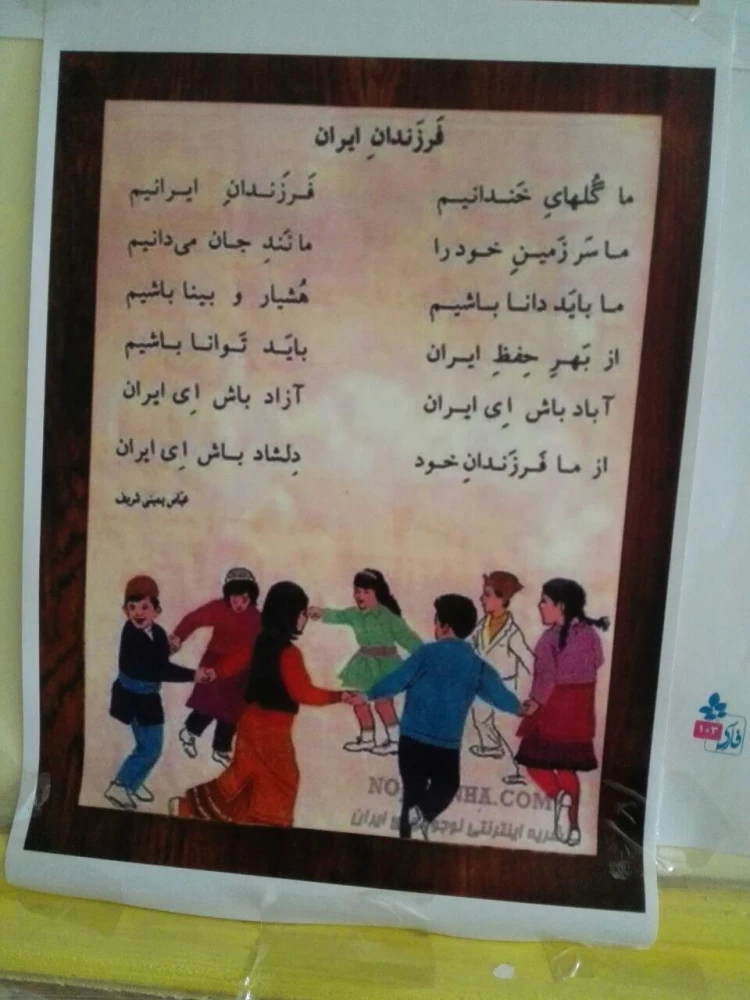 فَرزَندانِ ایران
ما گُلهایِ خَندانیم فَرزَندانِ ایرانیم
ما سَر زَمینِ خود را مانَندِ جان می‌دانیم
ما بایَد دانا باشیم هُشیار و بینا باشیم
از بَهرِ حِفظِ ایران بایَد تَوانا باشیم
آباد باش اِی ایران آزاد باش اِی ایران
از ما فَرزَندانِ خود دِلشاد باش اِی ایران
عباس یمینی شریف
HA.COM
اینترنتی
ایران
۱۰۳